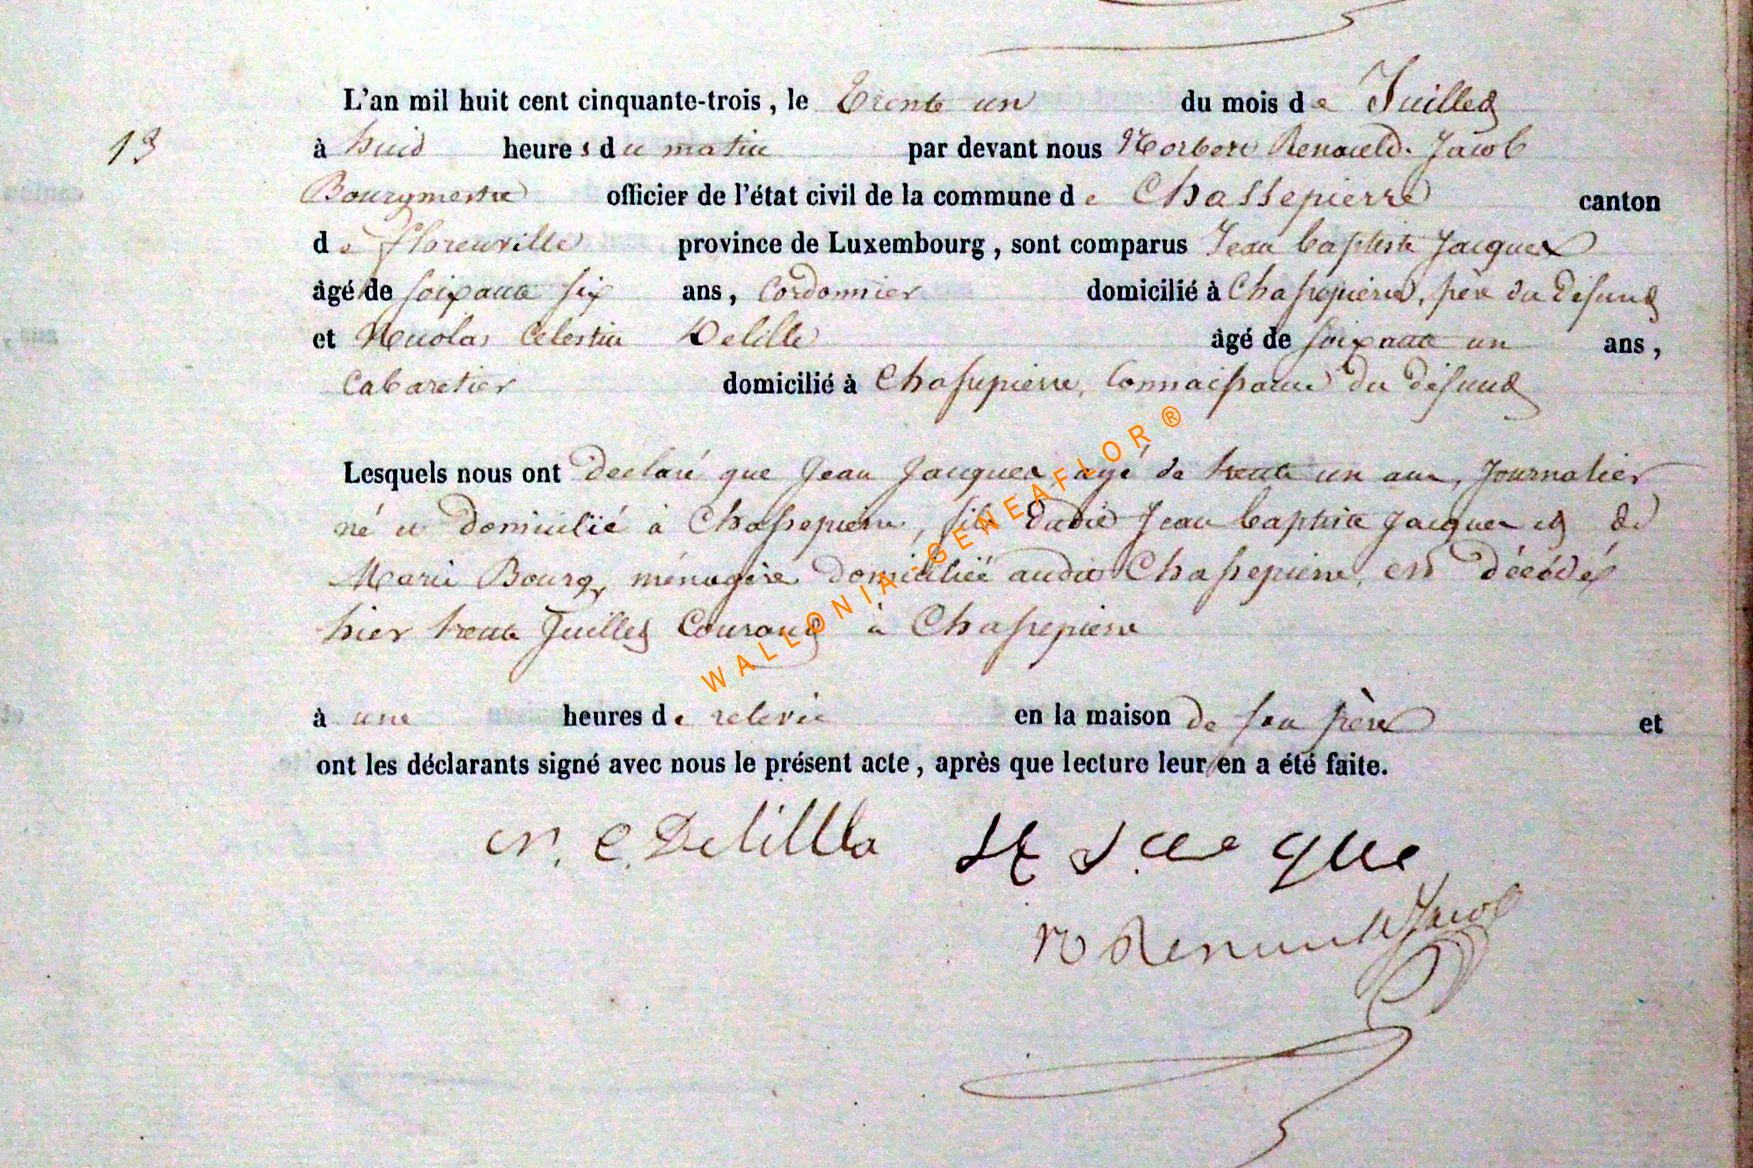 L'an mil huit cent cinquante-trois, le Trente un du mois de Juillet
13
à huit heures du matin par devant nous Norbert Renauld-Jacob
Bourgmestre officier de l'état civil de la commune de Chassepierre canton
de florenville province de Luxembourg, sont comparus Jean baptiste Jacques
âgé de soixante six ans, Cordonnier domicilié à Chassepierre, père du défunt
et Nicolas Celestin Delille âgé de soixante un ans,
Cabaretier domicilié à Chassepierre, Connaissance du défunt
Lesquels nous ont declaré que Jean Jacques, agé de trente un ans, Journalier
né et domicilié à Chassepierre, fils dudit Jean baptiste Jacques et de
Marie Bourg, ménagère domiciliée audit Chassepierre, est décédé
hier trente Juillet Courant à Chassepierre
à une heures de relevée en la maison de son père et
ont les déclarants signé avec nous le présent acte, après que lecture leur en a été faite.
N. C. Delille Jacque
N Renauld Jacob
WALLONIA-GENEAFLOR®